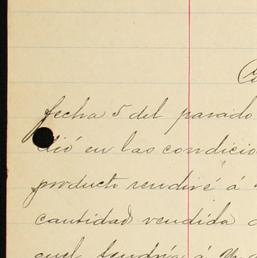 fecha 5 del pasado
dió en las condicio
producto rendiré á
cantidad vendida
cual tendría á